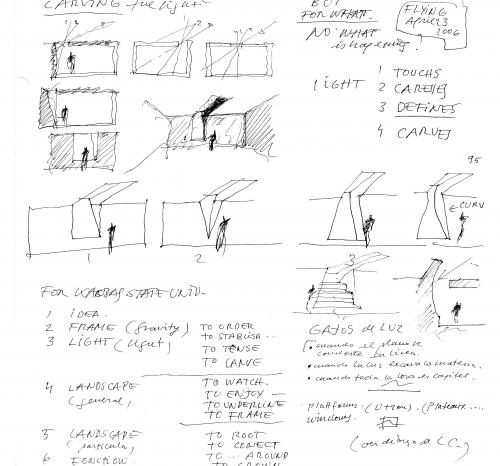 CARVING the light
BUT
FOR WHAT.
NO WHAT
is hapening!
FLYING
April 23
2006
LIGHT
1 TOUCHS
2
3 DEFINES
4 CARVES
95
CURV
1
2
3
FOR KANSAS STATE UNIV.
1 IDEA.
2 FRAME (gravity) TO ORDER
TO STABLISA...
3 LIGHT (light)
TO TENSE
TO CARVE
4 LANDSCAPE TO WATCH.
(general) TO ENJOY
TO UNDERLINE
TO FRAME
5 LANDSCAPE TO ROOT
(particular) TO CONECT
TO ... AROUND
6 FONCTION. TO CROWN
GAJOS de LUZ
• cuando el plano se
convierte en linea.
• cuando la luz excava la materia.
• cuando toda la losa es capitel.
platforms (Utzon). (Plateaux ...
windows.
(on dibujo de L C.)